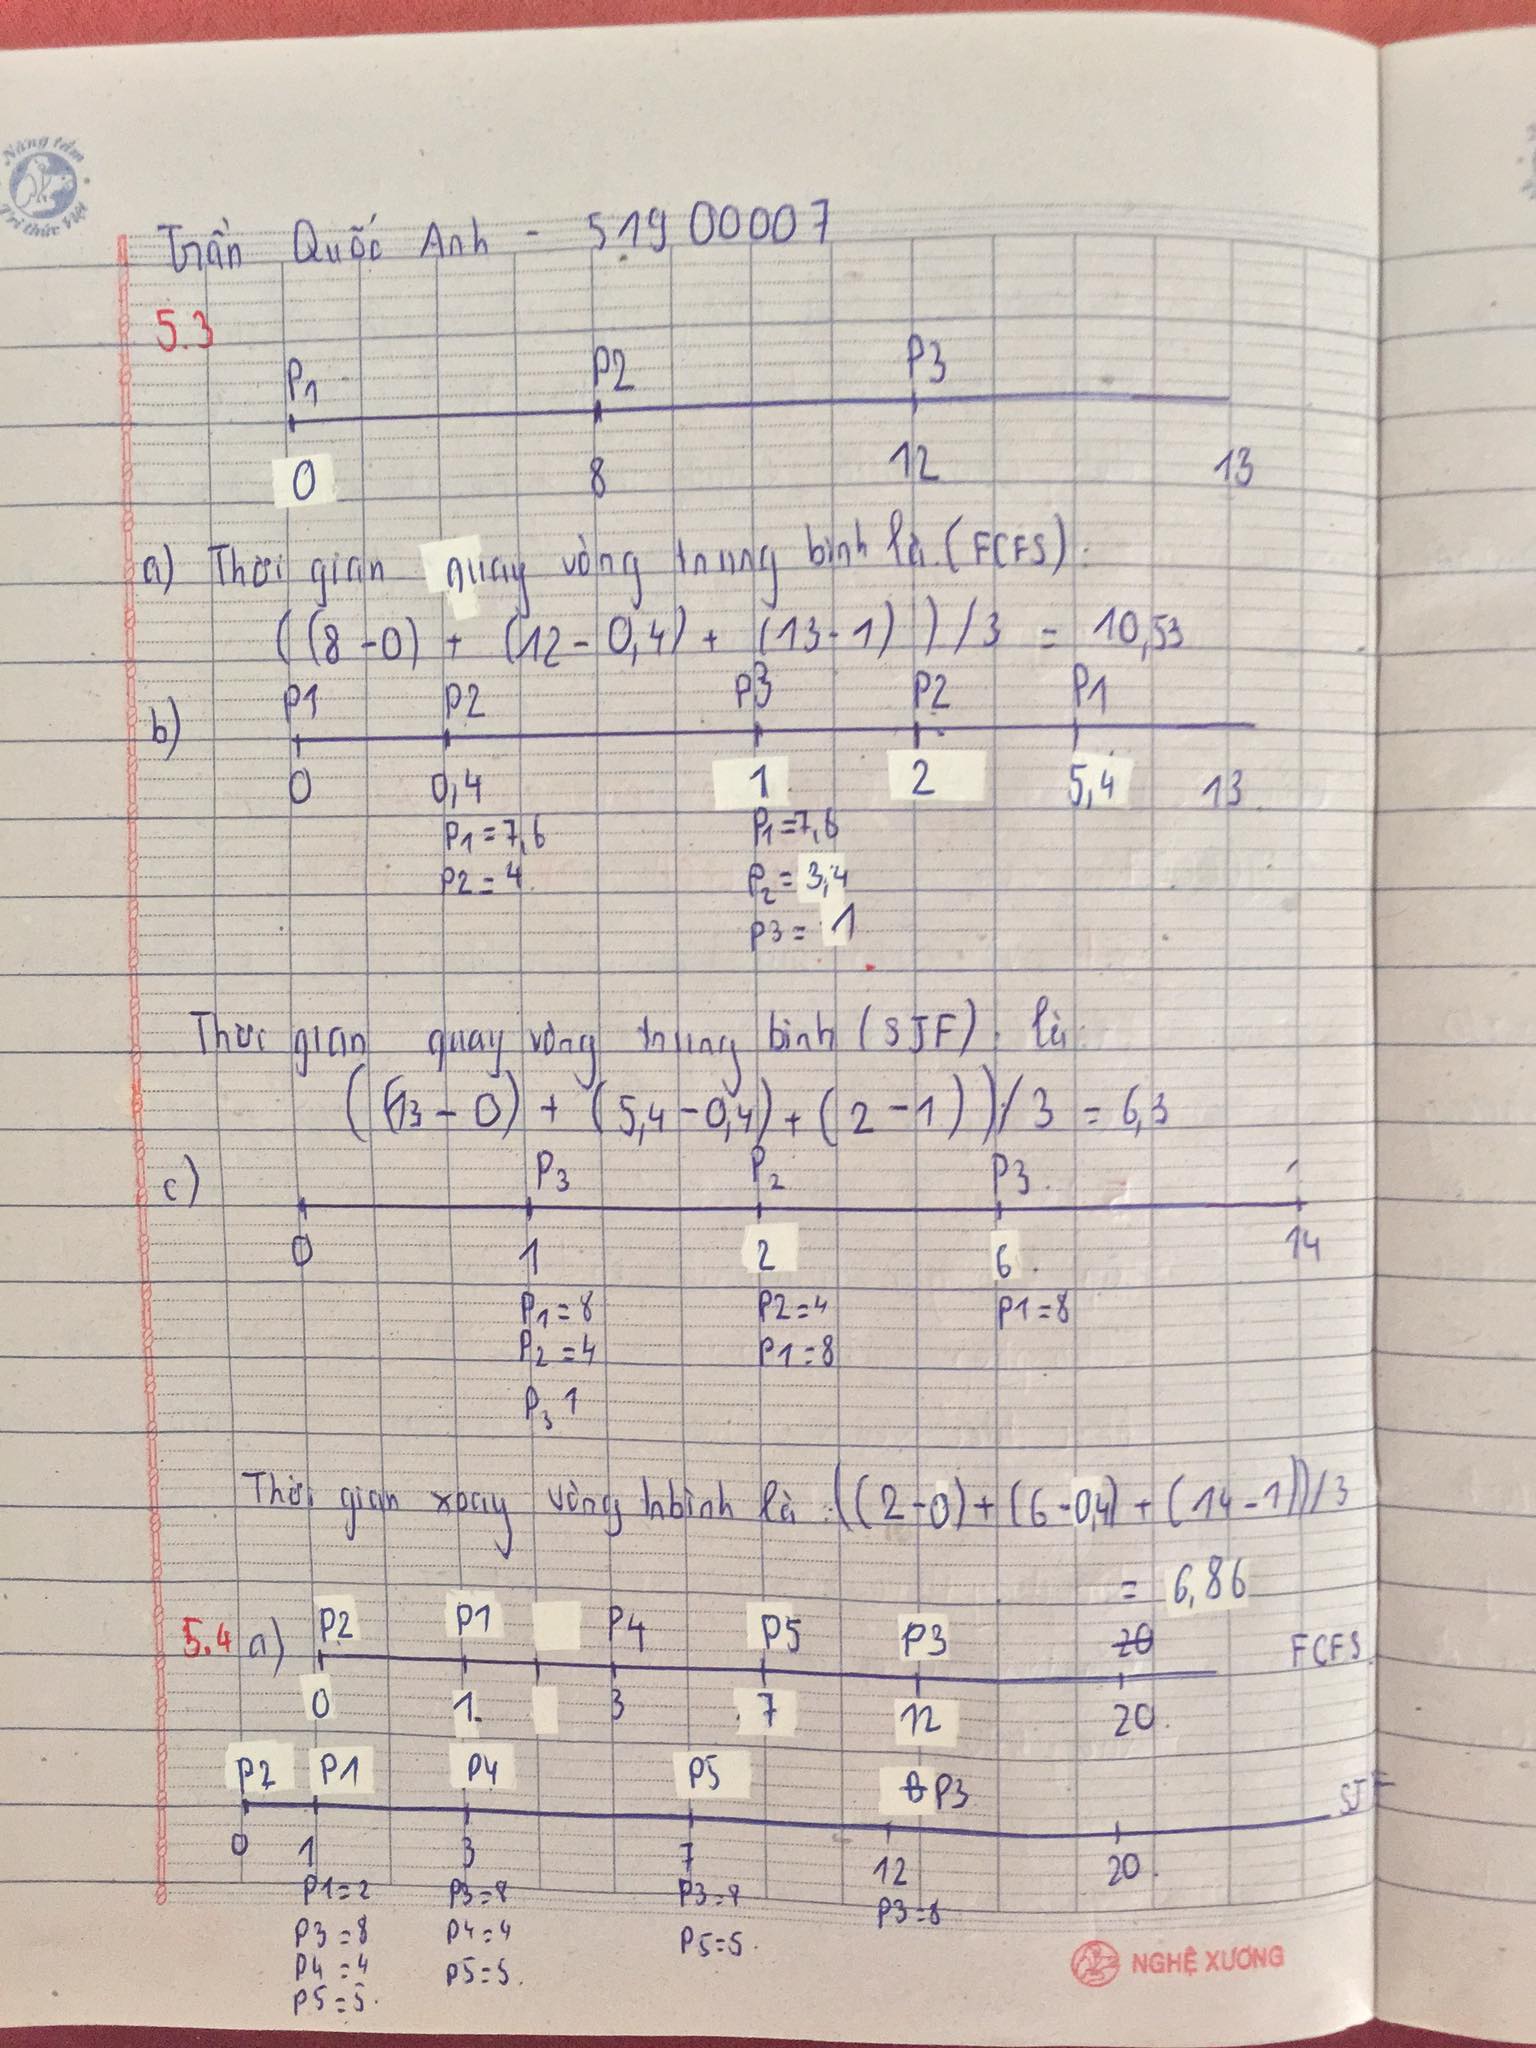 Nâng tầm
Tri thức Việt
Trần Quốc Anh - 51900007
5.3
P1 P2 P3
0 8 12 13
a) Thời gian quay vòng trung bình là (FCFS).
((8-0) + (12-0,4) + (13-1))/3 = 10,53
b)
P1 P2 P3 P2 P1
0 0,4 1 2 5,4 13
P1=7,6 P1=7,6
P2=4 P2=3,4
P3=1
Thời gian quay vòng trung bình (SJF). là
((13-0) + (5,4-0,4) + (2-1))/3 = 6,3
c)
P3 P2 P3
0 1 2 6 14
P1=8 P2=4 P1=8
P2=4 P1=8
P3 1
Thời gian xoay vòng trbình là ((2-0)+(6-0,4)+(14-1))/3
= 6,86
5.4 a) P2 P1 P4 P5 P3 20 FCFS
0 1 3 7 12 20
P2 P1 P4 P5 P3 SJF
0 1 3 7 12 20
P1=2 P3=8 P3=8 P3=8
P3=8 P4=4 P5=5
P4=4 P5=5
P5=5
NGHỆ XƯƠNG